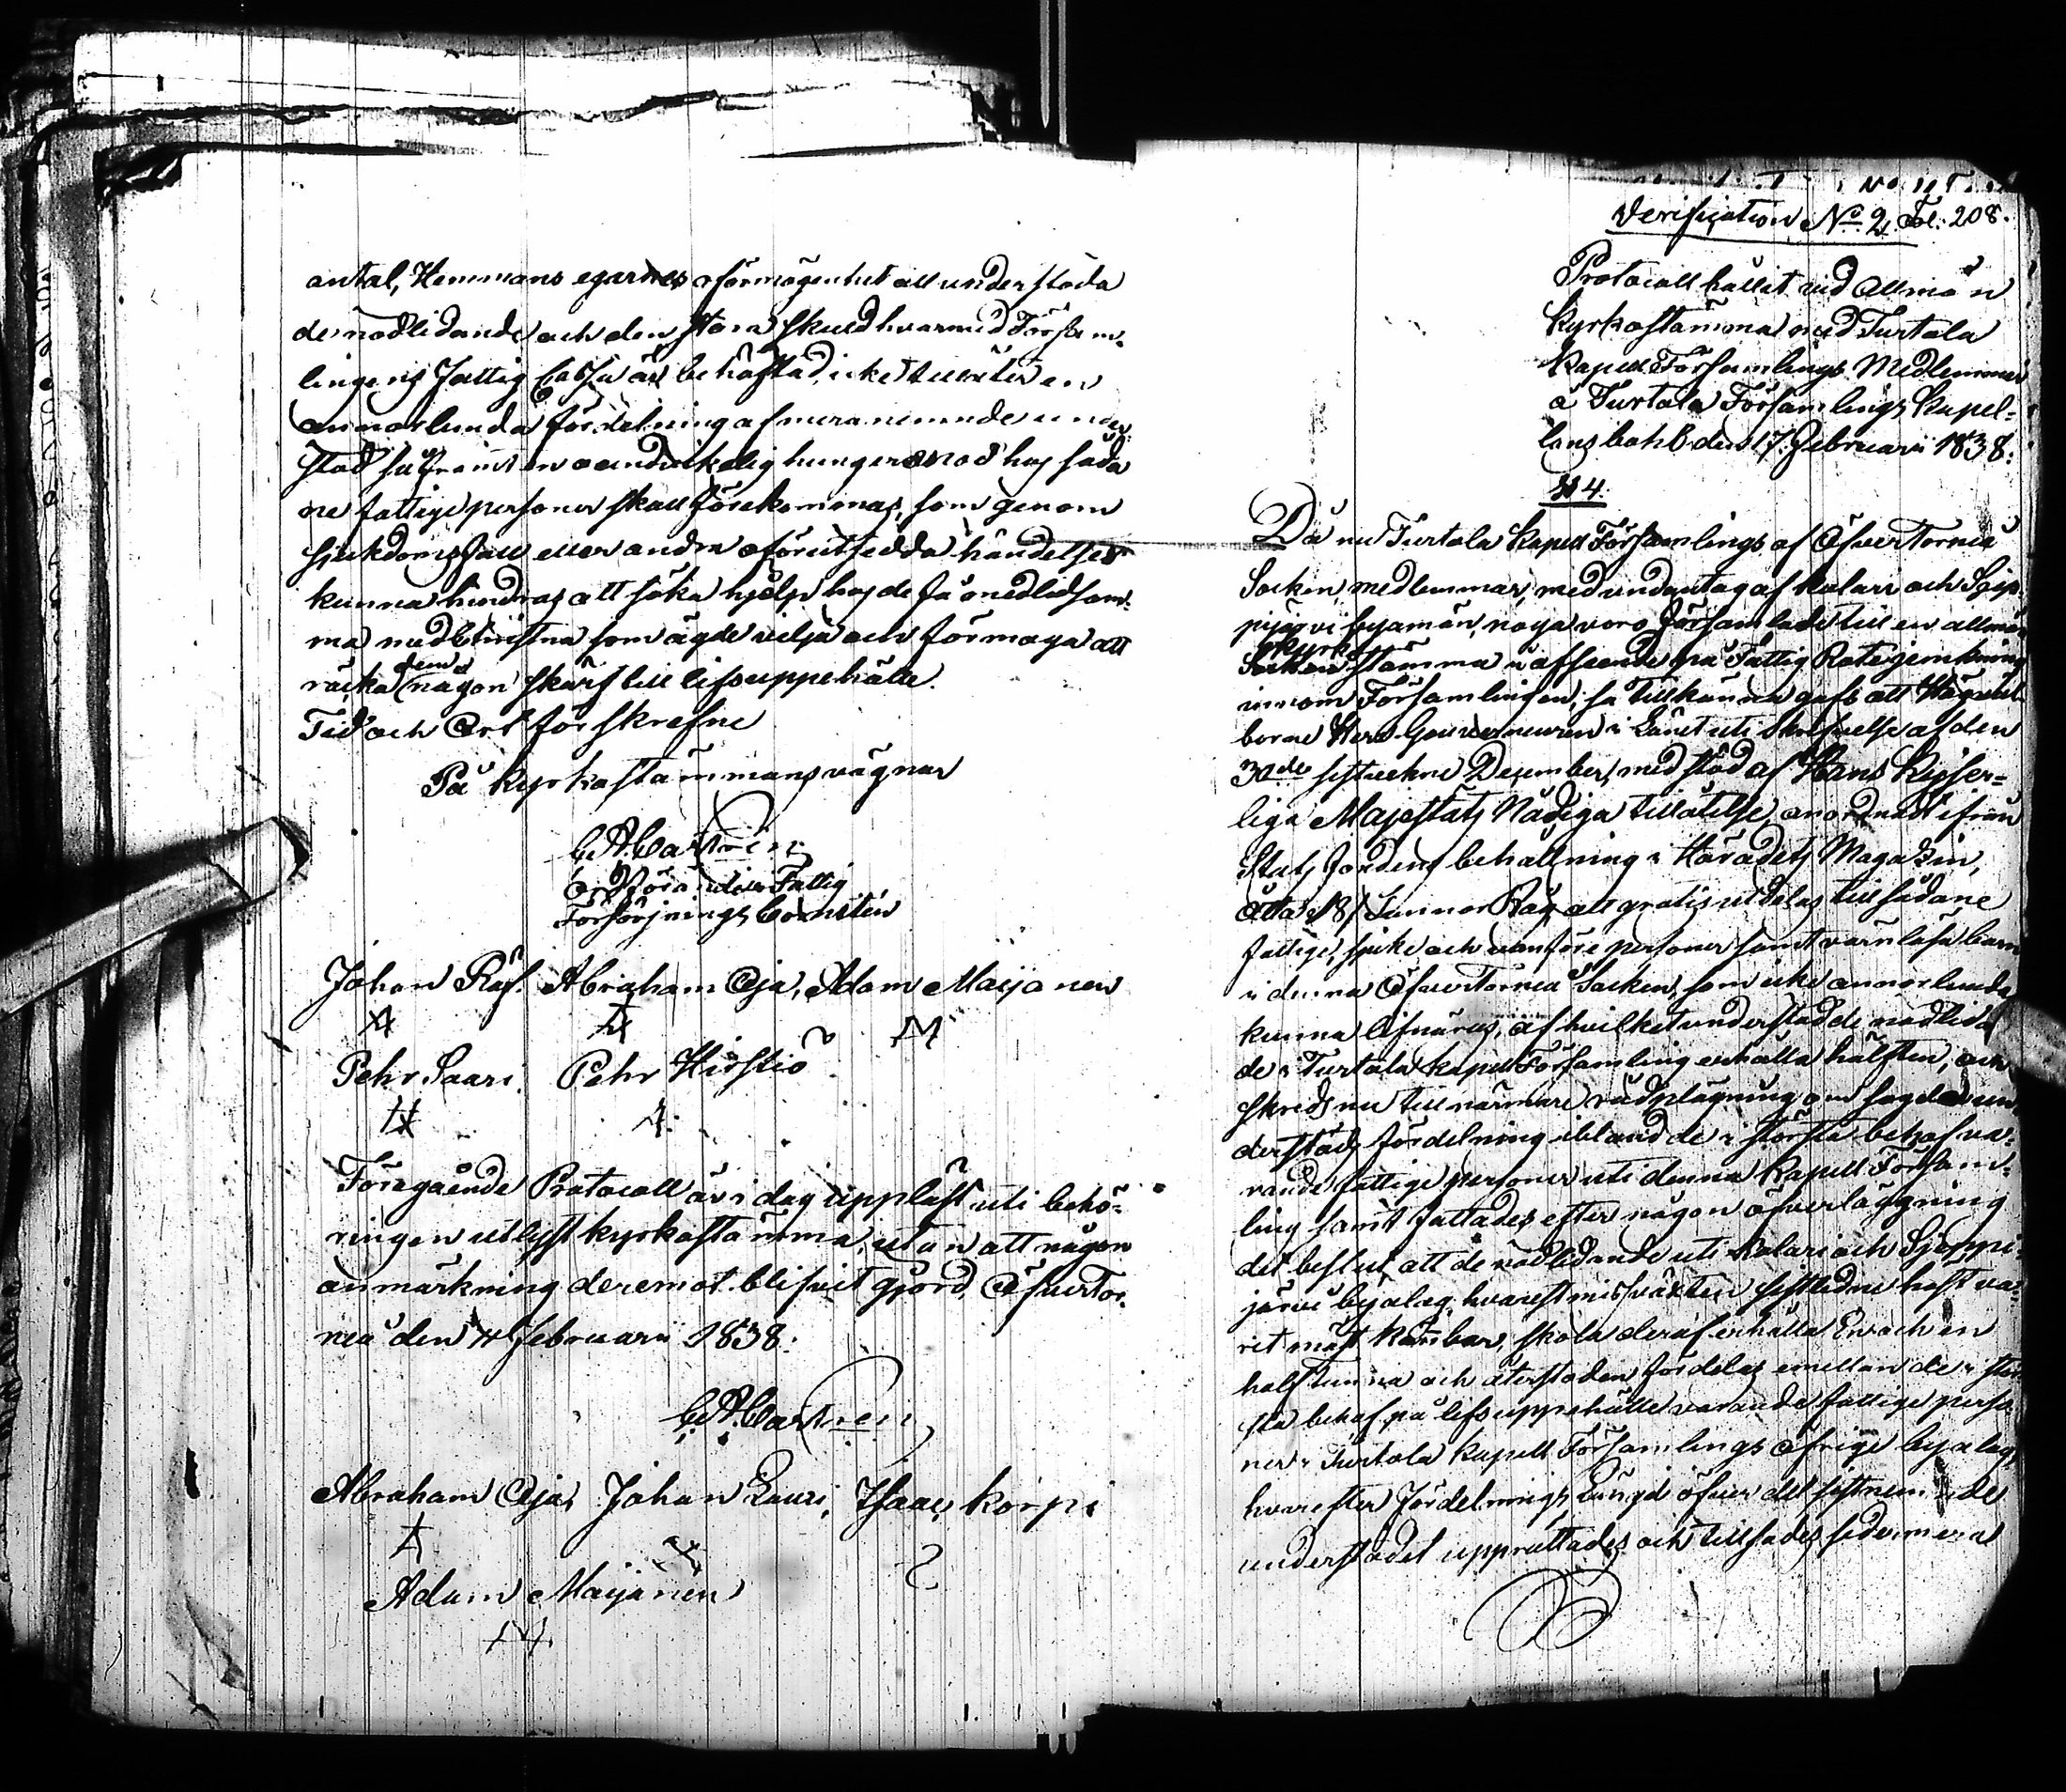 antal, Hemmans egarnes oförmögenhet att understöda
de nödlidande och den stora skuld hvarmed Försam-
lingens Fattig Cassa är behäftad, icke tillåter en
annorlunda fördelning af meranemnde under-
stöd så framt en oundvikelig hungersnöd hos såda
ne fattige personer skall förekommas, som genom
sjukdomsfall eller andra oförutsedda händelser
kunna hindras att söka hjelp hos de få medlidsam-
ma medchristna som ägde vilja och förmåga att
räcka dem någon skärf till lifsuppehälle.
Tid och Ort förskrefne
På kyrkostämmans vägnar
C. A. Castrén
Ordförande i Fattig
Försörjnings Comitén
Johan Räf. Abraham Oja, Adam Maijanen
Pehr Saari. Pehr Hirstiö
Föregående Protocoll är i dag uppläst uti behö-
ringen utlyst kyrkostämma, utan att någon
anmärkning deremot blifvit gjord, ÖfverTor-
neå den 4 februarii 1838:
C. A. Castrén
Abraham Oja, Johan Lauri, Isaac Korpi
Adam Maijanen
Verification No. 2. Fol. 208.
Protocoll hållit vid Allmän
Kyrkostämma med Turtola
Kapell Församlings Medlemmar
å Turtola Församlings Kapel-
lans bohl den 17. Februarii 1838:
§ 4.
Då nu Turtola Kapell Församlings af ÖfverTorneå
Socken medlemmar, med undantag af Kolari och Sjep
pijärvi byamän, noga voro församlade till en allmän
Kyrko
Socken stämma i afseende på Fattig Rote jemkning
innom Församlingen; så tillkänna gafs att Högvel-
borne Herr Gouverneuren i Länet uti skrifvelse af den
30de sistvekne December, med stöd af Hans Kejser-
liga Majestäts Nådiga tillåtelse, anordnadt ifrån
Stats fondens behållning i Häradets Magazin,
Åtta /8/ Tunnor Råg att gratis utdelas till sådane
fattige, sjuke och vanföre personer samt värnlösa barn
i denna ÖfverTorneå Socken, som icke annorlunda
kunna lifnäras, af hvilket understöd de nödlidan
de i Turtola Kapell Församling erhålla hälften, och
skreds nu till närmare rådplägning om sagde un-
derstöds fördelning ibland de i största behof va-
rande fattige personer uti denna Kapell Försam-
ling samt fattades efter någon öfverläggning
det beslut att de nödlidande uti Kolari och Sjeppi-
järvi byalag, hvarest missväxten sistledne höst va-
rit mäst kännbar, skola deraf erhålla En och en
half tunna och återstoden fördelas emellan de i stör
sta behof på lifsuppehälle varande fattige perso
ner i Turtola Kapell Församlings öfrige byalag,
hvarefter fördelnings Längd öfver det sistnemnde
understödet upprättades och tillsades sedermera